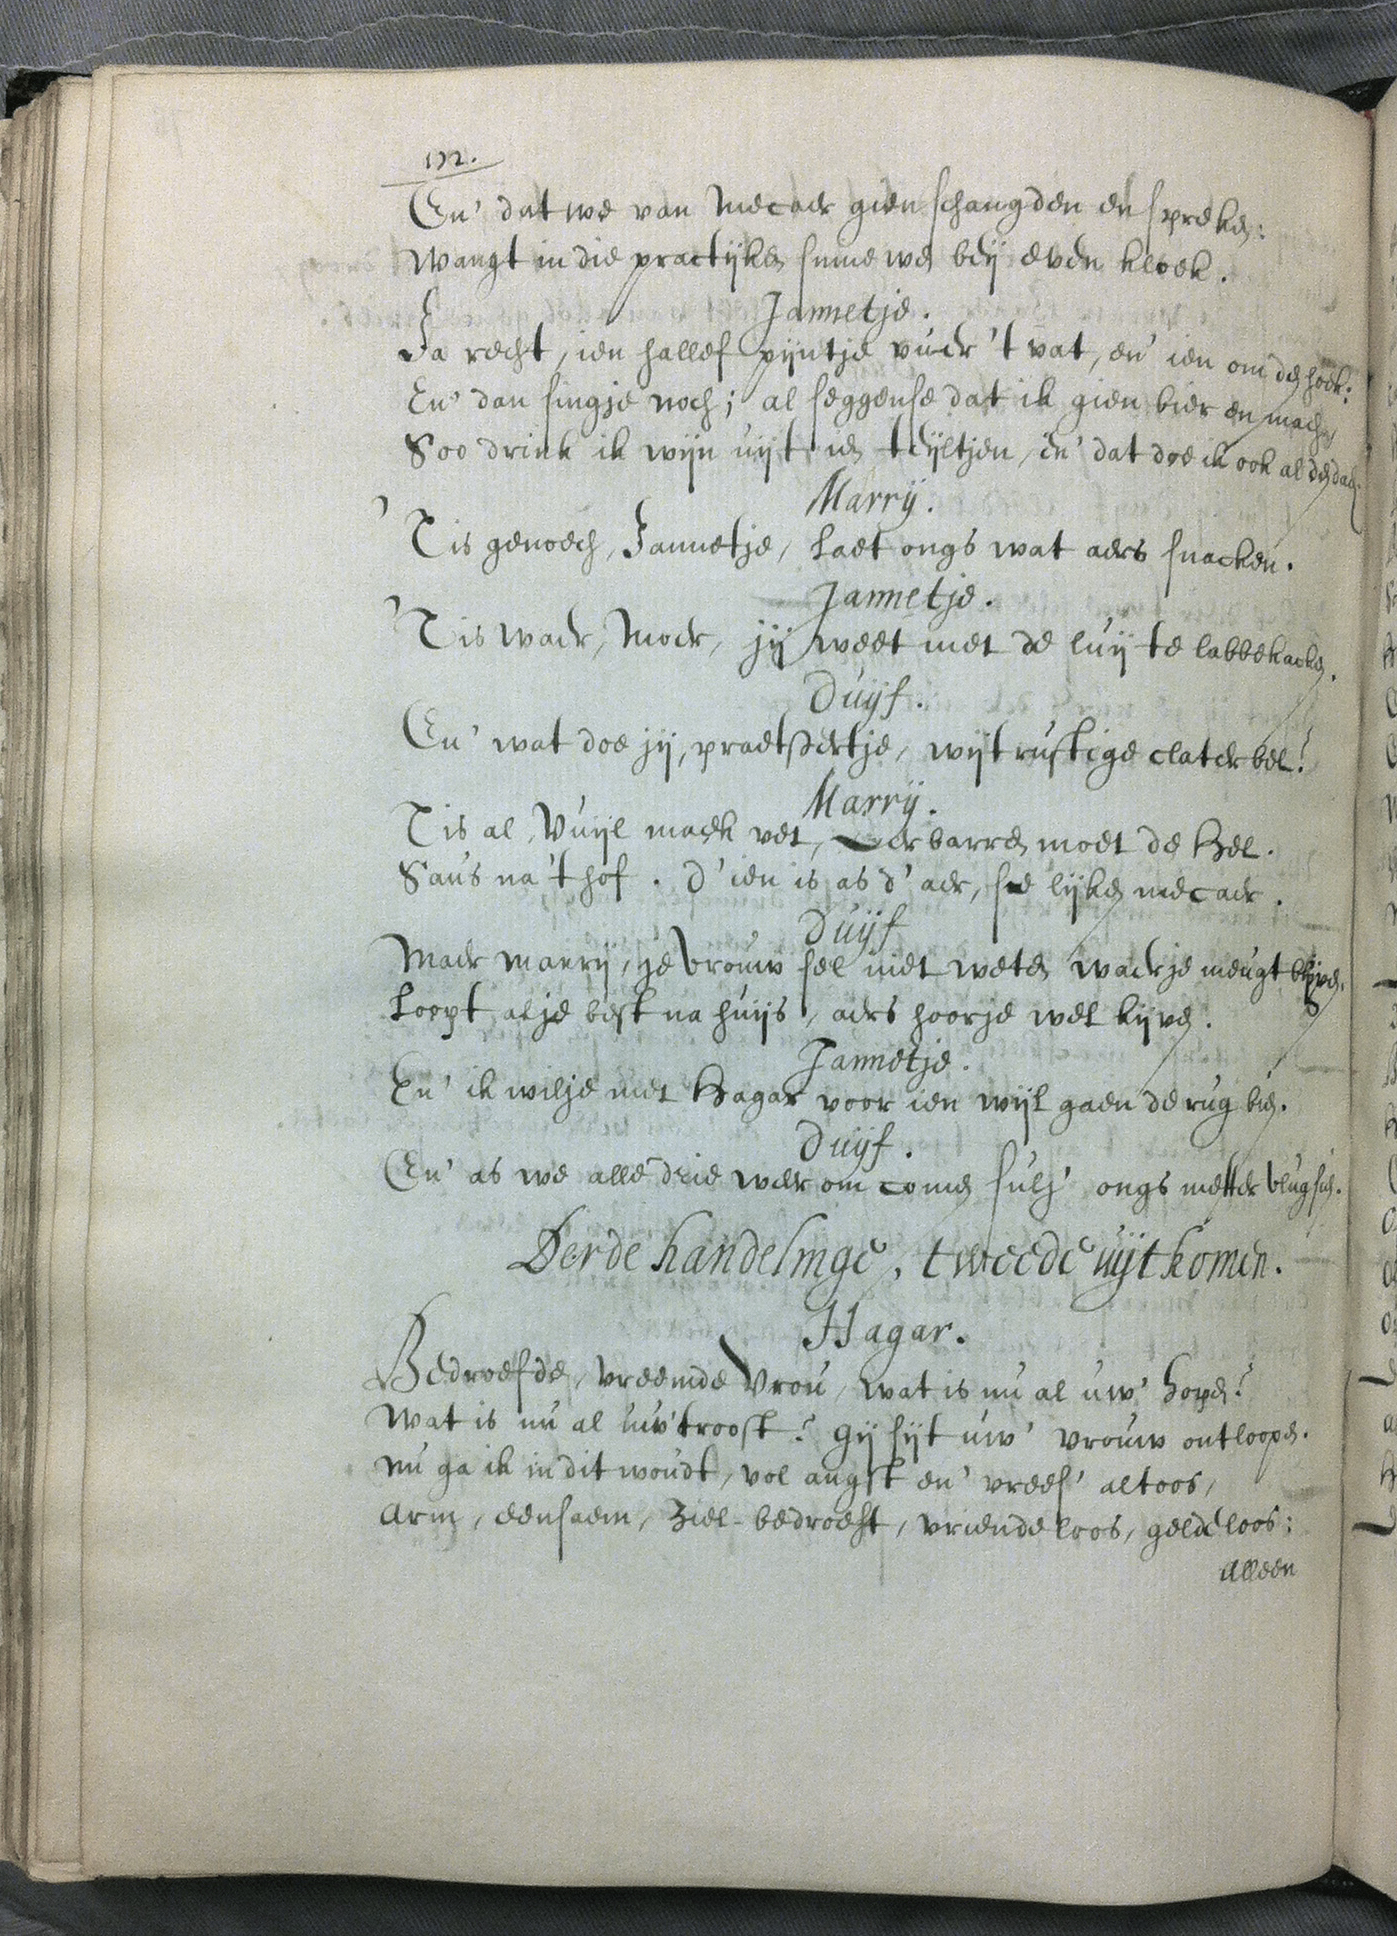 172.
En' dat we van mecaer gien schangden en spreken:
Wangt in die practijken sinne we bey even kloek.
Jannetje.
Ja recht, ien hallef pijntje vuer 't vat, en' ien om den hoek:
En' dan singje noch; al seggense dat ik gien bier en mach,
Soo drink ik wijn uijt ien teijltjen, en' dat doe ik ook al den dach.
Marrij.
'Tis genoech, Jannetje, laet ongs wat aers snacken.
Jannetje.
'Tis waer, Moer, jij weet met de luij te labbekacken.
Duijf.
En' wat doe jij, praetstertje, wijtruftige claterbel?
Marrij.
Tis al, Vuijl maek vet, barren moet de Hel.
Saus na 't hof. D'ien is as d'aer, se lijken mecaer.
Duijf
Maer marrij, je vrouw sel niet weten waerje meugt blijven.
Loopt alje best na huijs, aers hoorje wel kijven.
Jannetje.
En' ik wilje met Hagar voor ien wijl gaen de rug bien.
Duijf.
En' as we alle drie weerom comen sulj' ongs metter vlug sien.
Derde handelinge, tweede uijtkomen.
Hagar.
Bedroefde, vreemde Vrou, wat is nu al uw' hopen?
Wat is nu al uw' troost? Gij sijt uw' vrouw ontloopen.
Nu ga ik in dit woudt, vol angst en' vrees' altoos,
Arm, eensaem, Ziel-bedroeft, vriendeloos, geldeloos:
Alleen